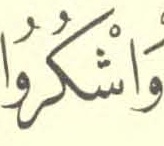 وَاشْكُرُوا